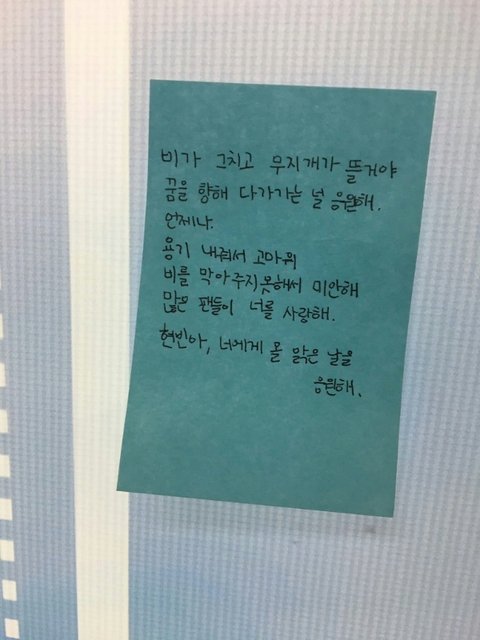 비가 그치고 무지개가 뜰거야
꿈을 향해 다가가는 널 응원해.
언제나.
용기 내줘서 고마워
비를 막아주지못해서 미안해
많은 팬들이 너를 사랑해.
현빈아, 너에게 올 맑은 날을
응원해.